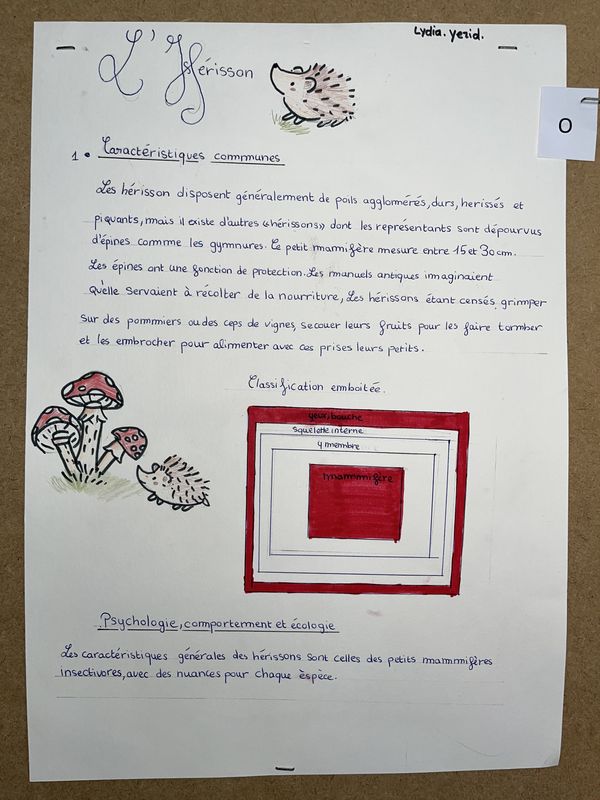 Lydia. yezid.
L'Hérisson
O
1 • Caractéristiques communes
Les hérisson disposent généralement de poils agglomérés, durs, herissés et
piquants, mais il existe d'autres «hérissons» dont les représentants sont dépourvus
d'épines comme les gymnures. Ce petit mamifère mesure entre 15 et 30 cm.
Les épines ont une fonction de protection. Les manuels antiques imaginaient
qu'elle servaient à récolter de la nourriture, Les hérissons étant censés grimper
sur des pommiers ou des ceps de vignes, secouer leurs fruits pour les faire tomber
et les embrocher pour alimenter avec ces prises leurs petits.
Classification emboitée.
yeux, bouche
squelette interne
4 membre
mammifère
Psychologie, comportement et écologie
Les caractéristiques générales des hérissons sont celles des petits mammifères
insectivores, avec des nuances pour chaque èspèce.